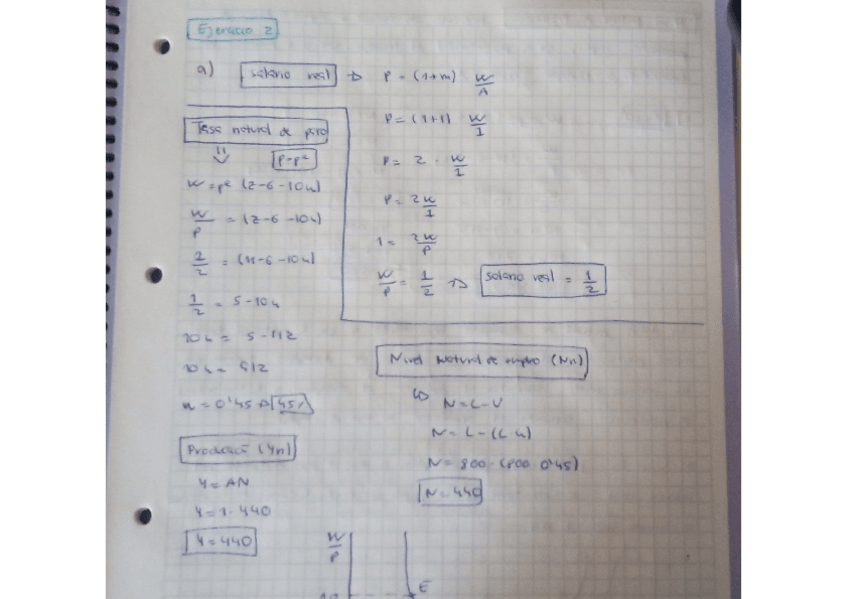 Ejercicio 2
a) salario real → P = (1+m) W/A
P = (1+1) W/1
P = 2 · W/1
P = 2W/1
1 = 2W/P
W/P = 1/2 → salario real = 1/2
Tasa natural de paro
P=Pᵉ
W = Pᵉ (z-6-10u)
W/P = (z-6-10u)
1/2 = (11-6-10u)
1/2 = 5-10u
10u = 5-1/2
10u = 9/2
u = 0'45 → 45%
Nivel natural de empleo (Nn)
N = L-U
N = L-(L·u)
N = 800-(800·0'45)
N = 440
Producción (Yn)
Y = AN
Y = 1·440
Y = 440
W/P
E